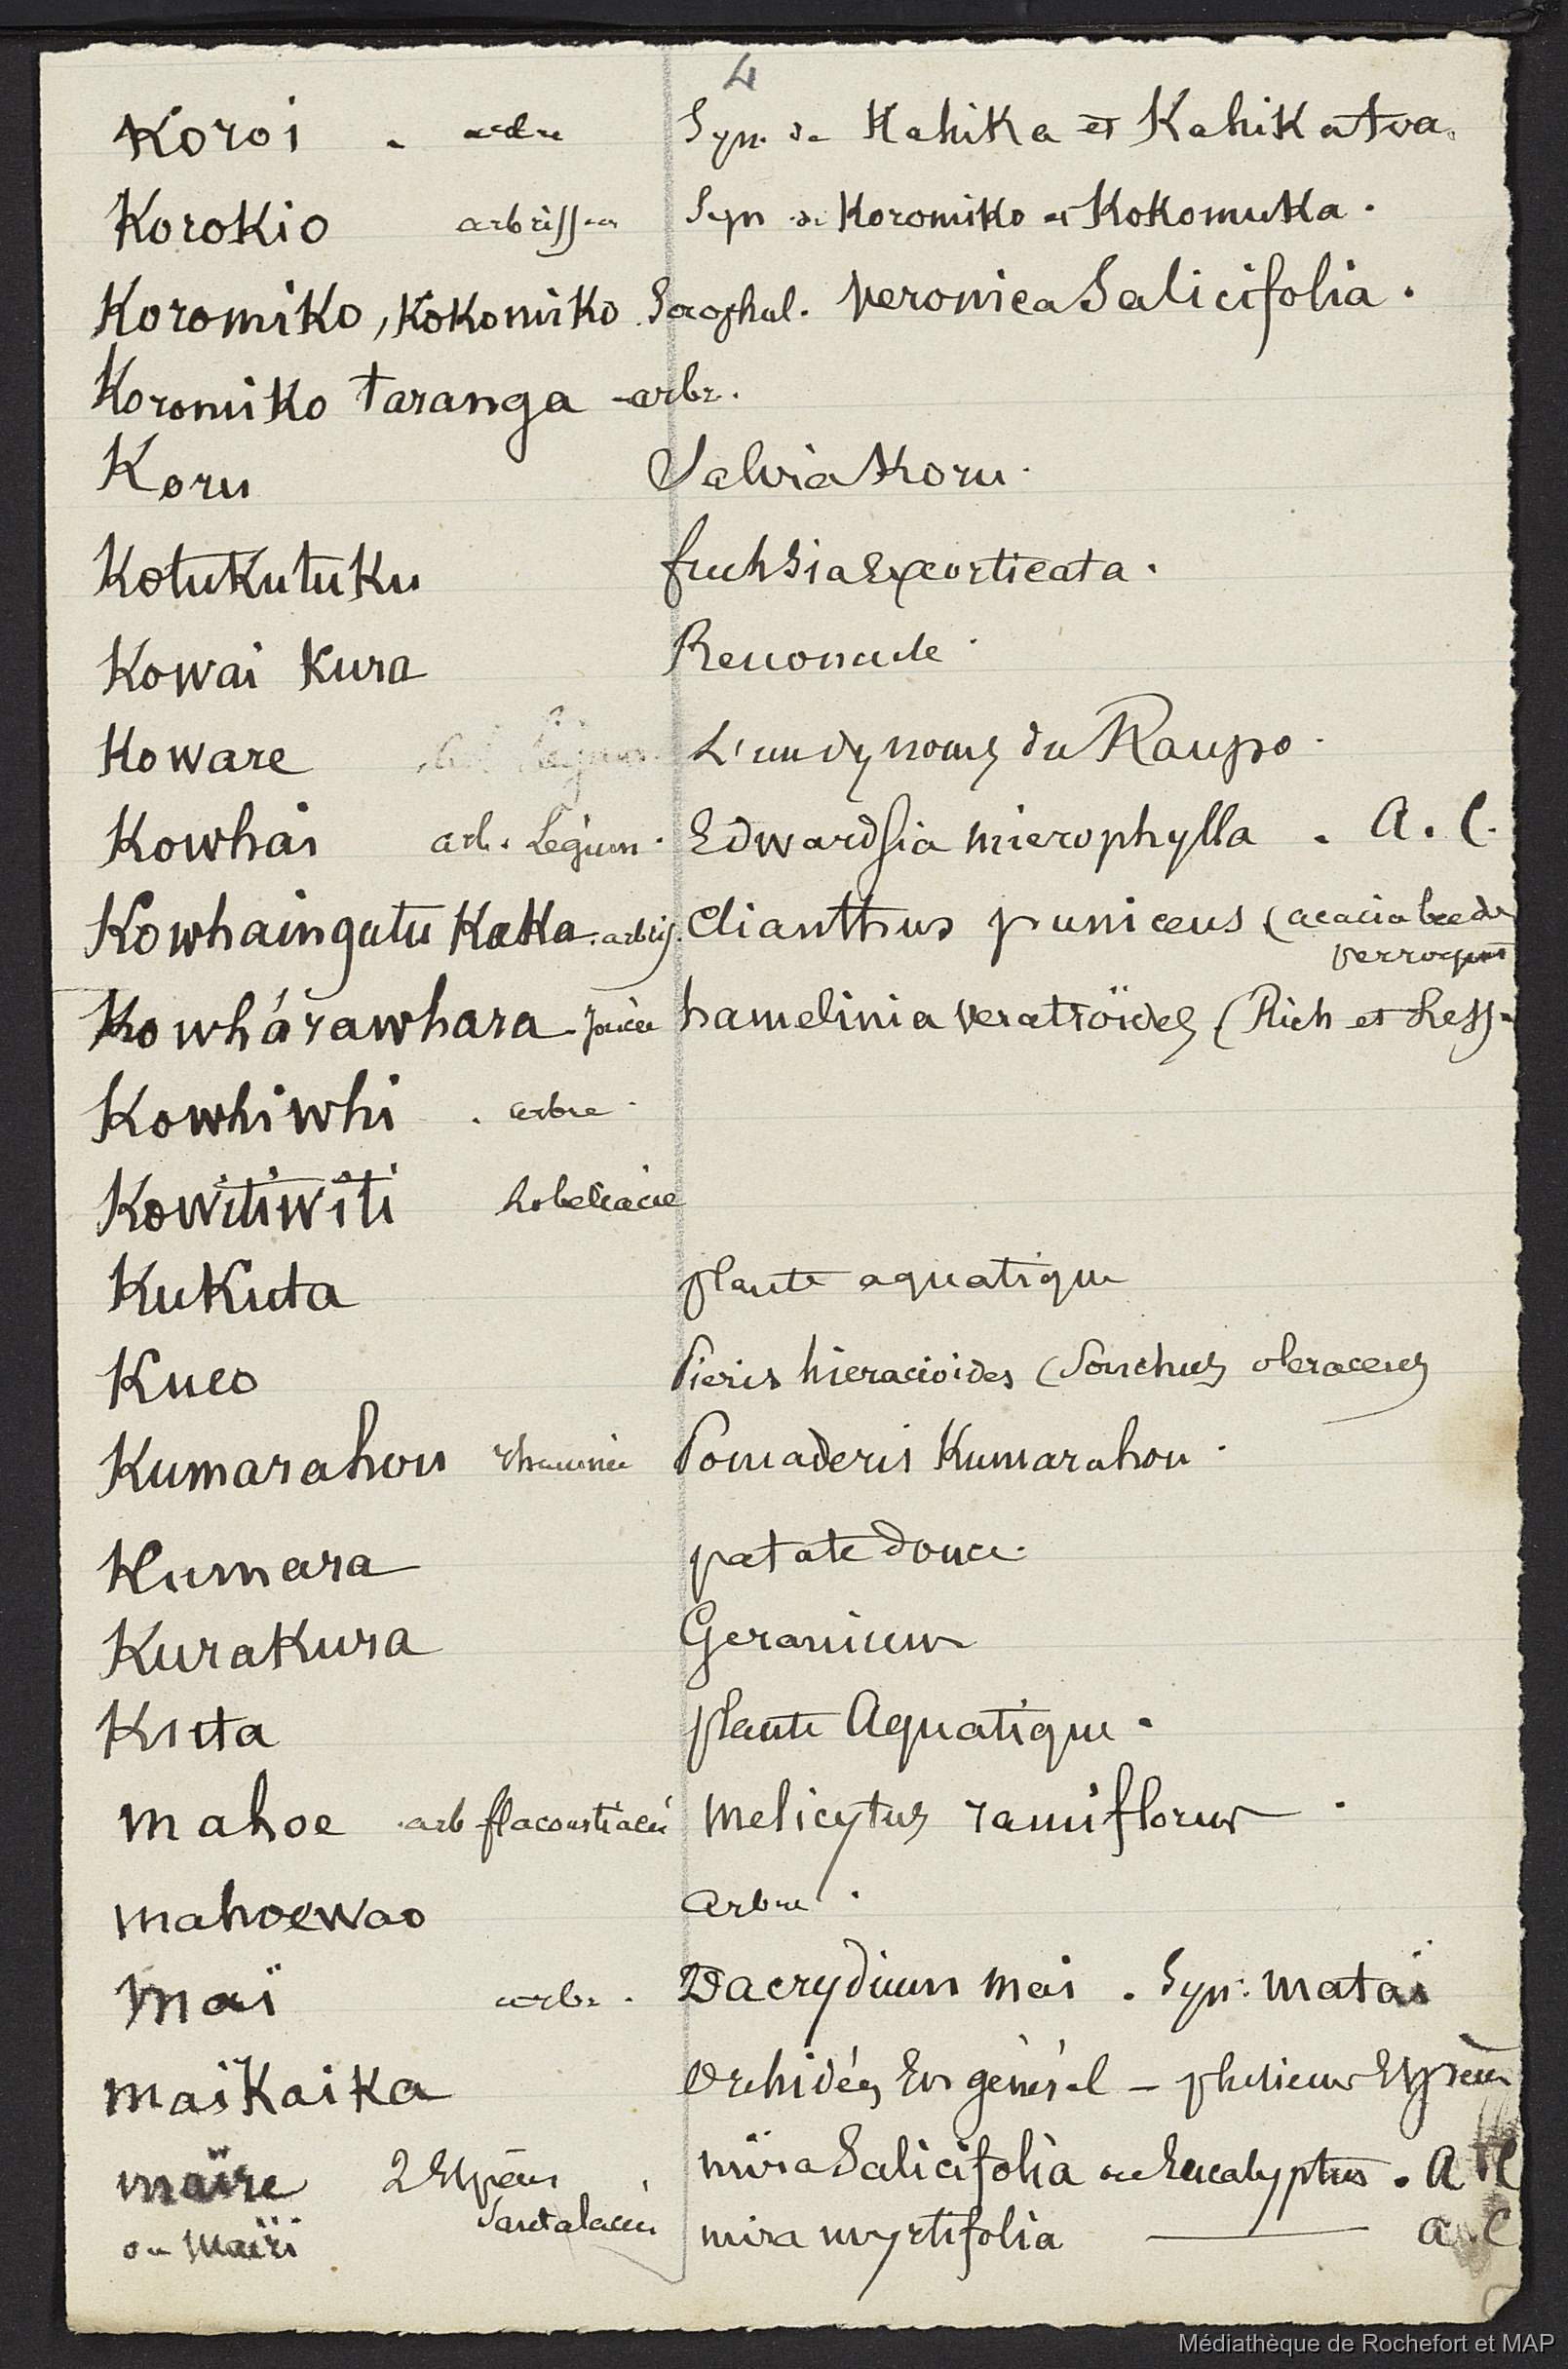 4
Koroi - arbre Syn. de Kahika et Kahikatoa.
Korokio arbrisseau Syn de Koromiko et Kokomuka.
Koromiko, Kokomiko. Scrophul. Veronica Salicifolia.
Koromiko taranga - arbr.
Koru Salvia Koru.
Kotukutuku fuchsia Excorticata.
Kowai Kura Renoncule
Koware L'un des noms du Raupo.
Kowhai arb. Légum. Edwardsia microphylla. A. C.
Kowhaingutu Kaka. arbris. Clianthus puniceus (acacia bec de
perroquet
Kowhárawhara - joncée hamelinia veratroïdes (Rich et Less.
Kowhiwhi. arbre.
Kowitiwiti Lobeliacée
Kukuta plante aquatique
Kueo Picris hieracioides (Sonchus oleraceus
Kumarahou rhamnée Pomaderis Kumarahou.
Kumara patate douce.
Kurakura Geranium
Kuta plante Aquatique.
mahoe arb flacourtiacée Melicytus ramiflorus.
mahoewao arbre.
Maï arbr. Dacrydium mai. Syn: mataï
maïkaika Orchidées En général - plusieurs Espèces
maïre 2 Espèces mira Salicifolia ou Eucalyptus. A C
ou Maïri Santalacée mira myrtifolia ——— a. C
Médiathèque de Rochefort et MAP